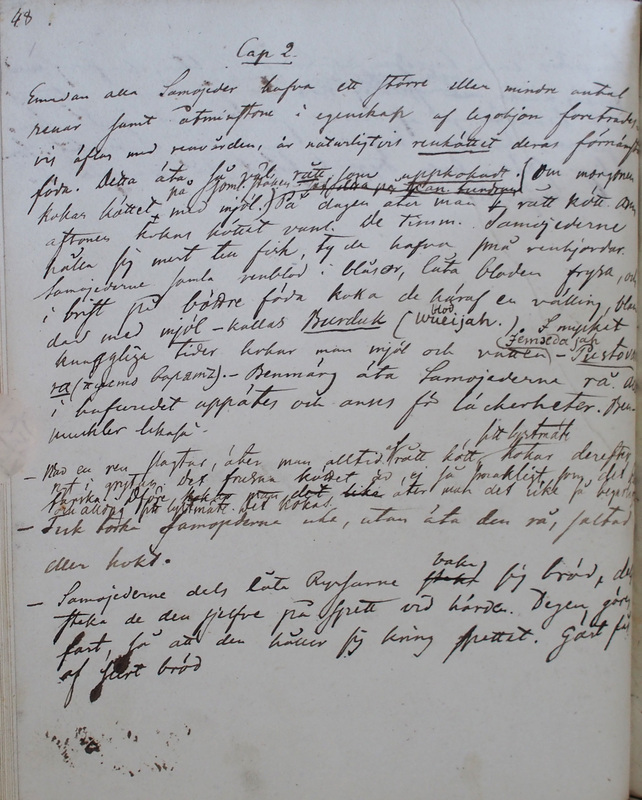 48
Cap 2.
Emedan alla Samojeder hafva ett större eller mindre antal
renar samt åtminstone i egenskap af legohjon företrädes
vis äflas med renvården, är naturligtvis renköttet deras förnämsta
föda. Detta äta så väl rått som uppkokadt. (Om morgonen
kokas köttet med mjöl.) På dagen äter man rått kött. Om
aftonen kokas köttet vanl. De Timm. Samojederne
hålla sig mert till fisk, ty de hafva små renhjordar.
Samojederne samla renblod i blåsor, låta bloden frysa, och
i brist på bättre föda koka de häraf en välling, blan
dad med mjöl – kallas Burduk (blod. wueijah.) I mycket
knappliga tider kokar man mjöl och vatten – (Jemsedajah) Pustova
ra (пусто варят). – Benmärg äta Samojederne rå.
i hufvudet uppätes och anses för läckerheter.
muskler likaså.
– När en ren slagtas, äter man alltid rått kött, kokar derefter
sitt lystmäte
not i grytan. Det frusna köttet är ej så smakligt som det
färska. äter man det icke så begärligt
sitt lystmäte. det kokas.
– Fisk torka Samojederna icke, utan äta den rå, saltad
eller kokt.
– Samojederne dels låta Ryssarne baka sig bröd, dels
steka de den sjelfve på spett vid härden. Degen göres
fast, så att den håller sig kring spettet. Gärt
af surt bröd